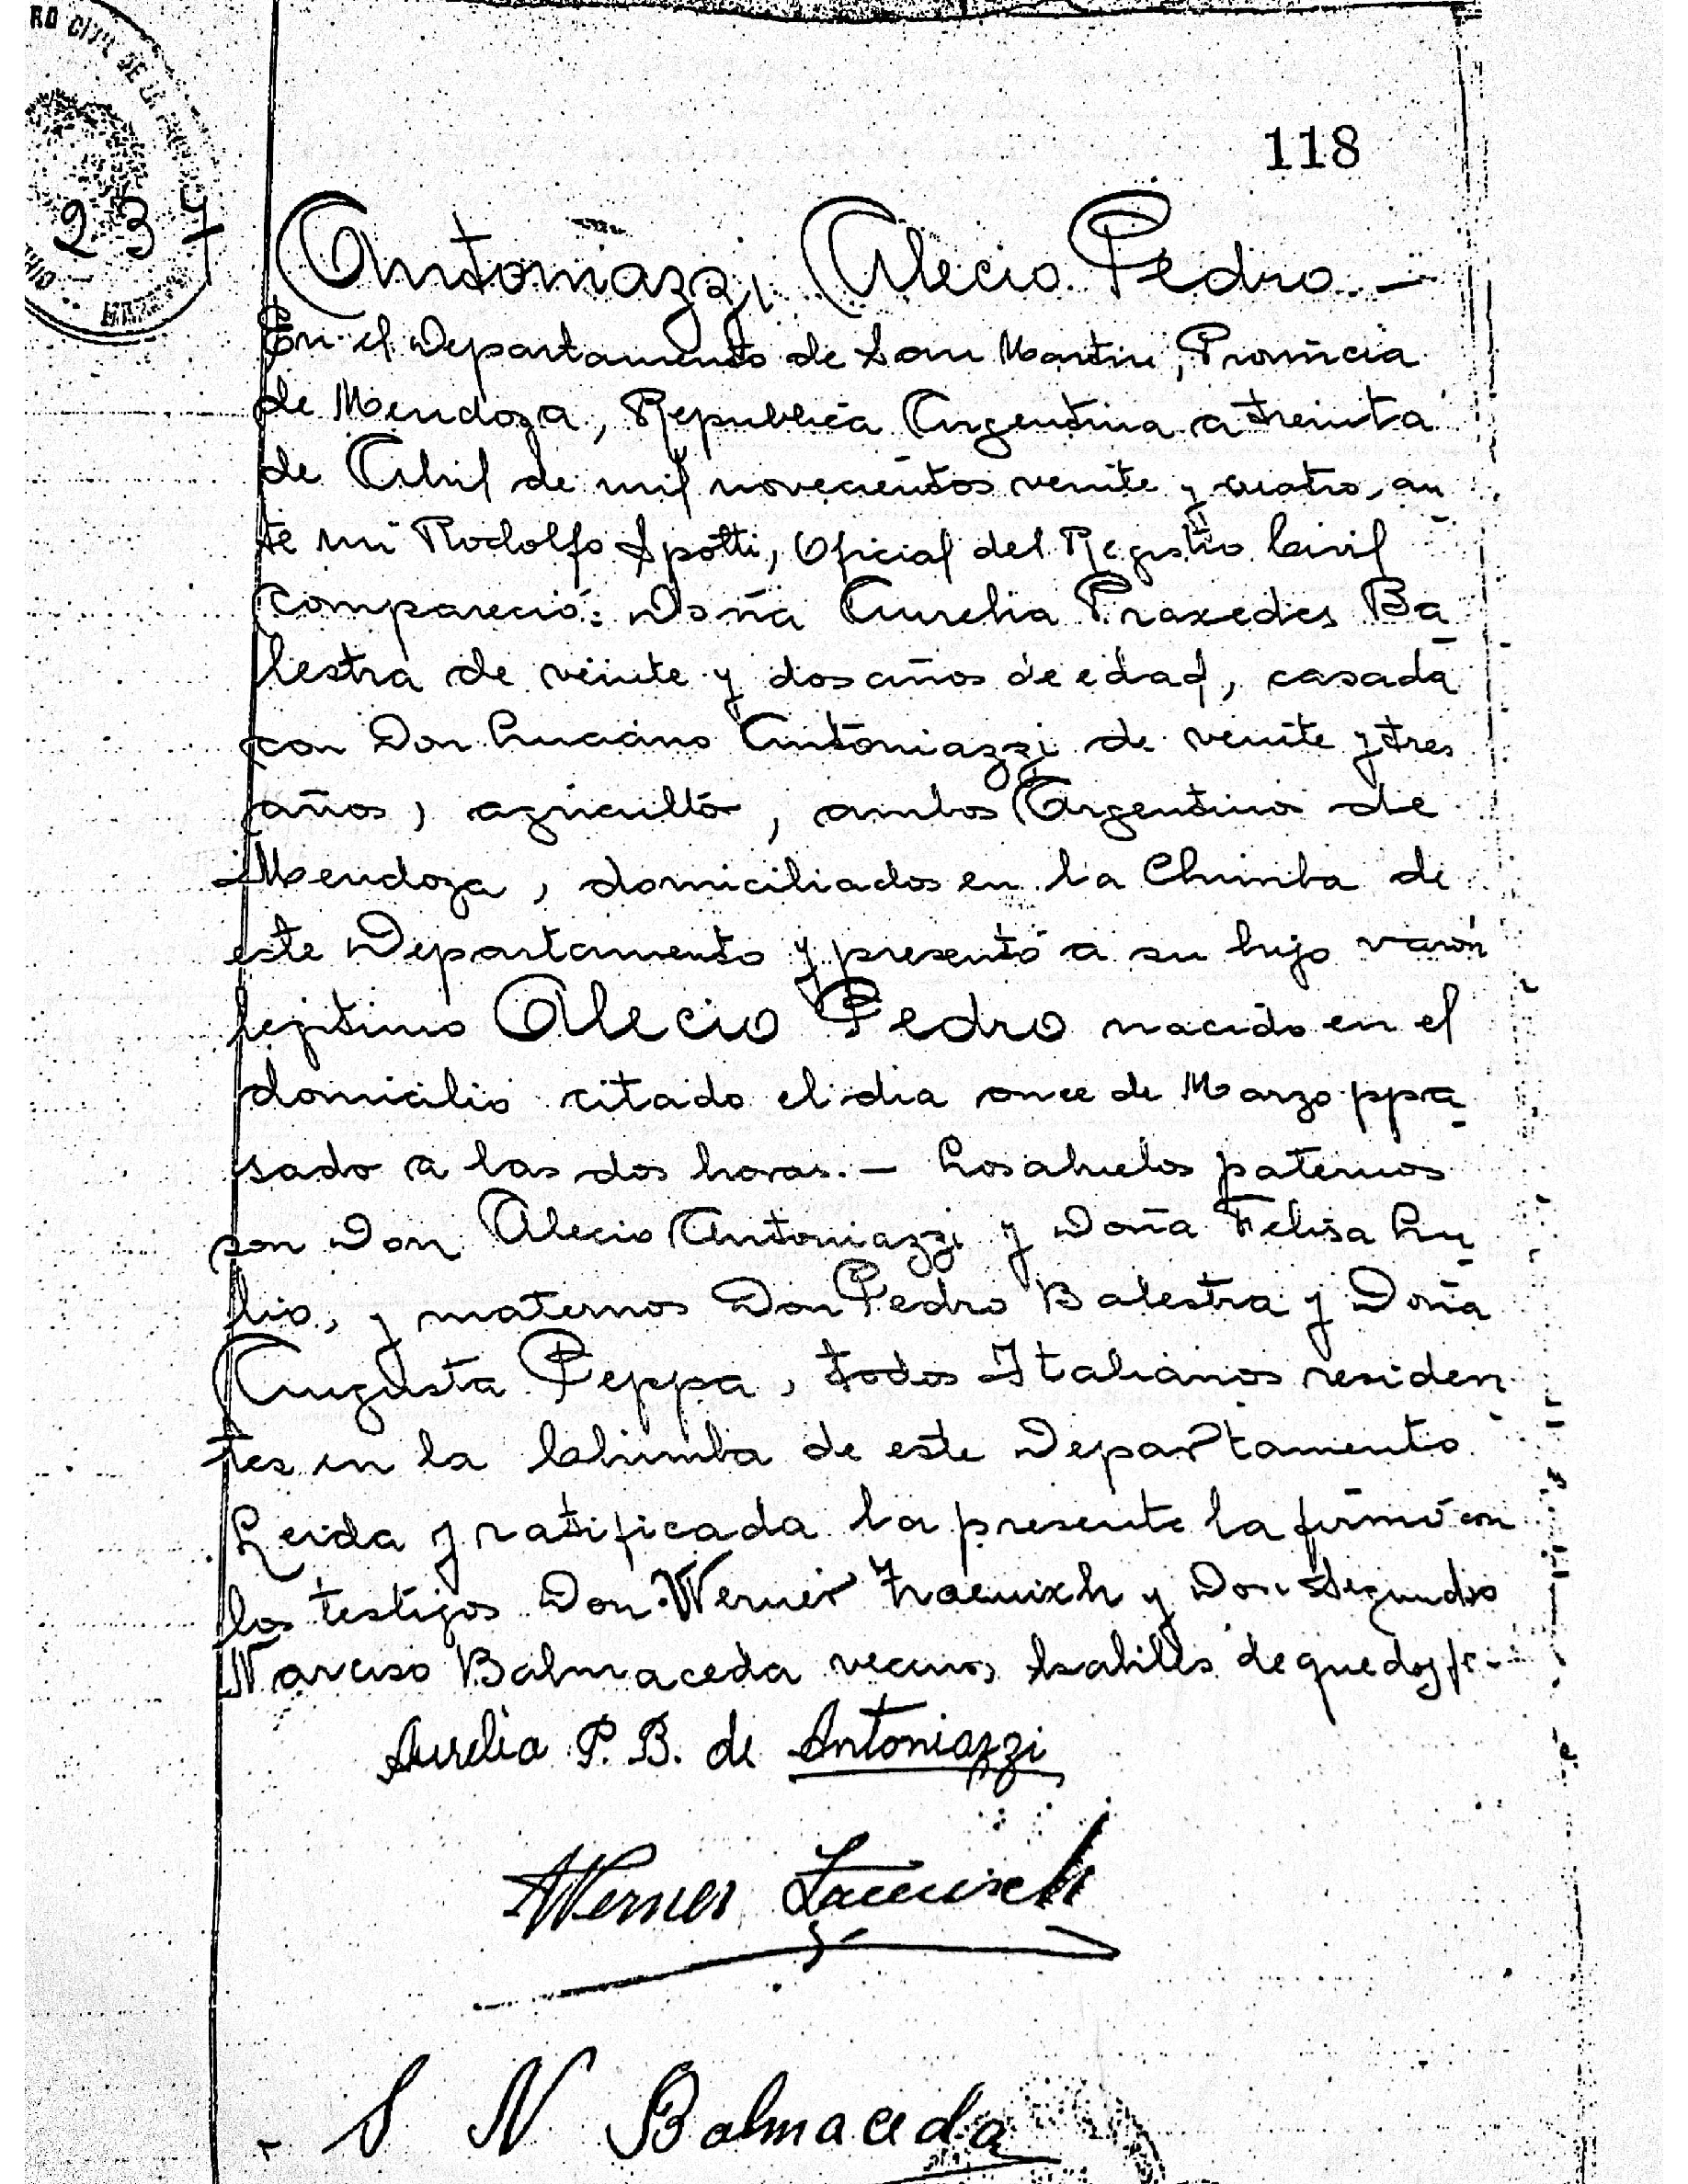 RO CIVIL DE LA
118
234
Antoniazzi, Alecio Pedro.—
En el Departamento de San Martin, Provincia
de Mendoza, Republica Argentina a treinta
de Abril de mil novecientos veinte y cuatro, an
te mi Rodolfo Spotti, Oficial del Registro Civil
compareció: Doña Aurelia Praxedes Ba
lestra de veinte y dos años de edad, casada
con Don Luciano Antoniazzi de veinte y tres
años, agricultor, ambos Argentinos de
Mendoza, domiciliados en la Chimba de
este Departamento y presentó a su hijo varón
lejitimo Alecio Pedro nacido en el
domicilio citado el dia once de Marzo ppa
sado a las dos horas.— Los abuelos paternos
son Don Alecio Antoniazzi y Doña Felisa Lu
lio, y maternos Don Pedro Balestra y Doña
Augusta Peppa, todos Italianos residen
tes en la Chimba de este Departamento.
Leida y ratificada la presente la firmó con
los testigos Don Werner y Don Segundo
Narciso Balmaceda vecinos habiles de que doy fe.-
Aurelia P. B. de Antoniazzi
Werner
S N Balmaceda